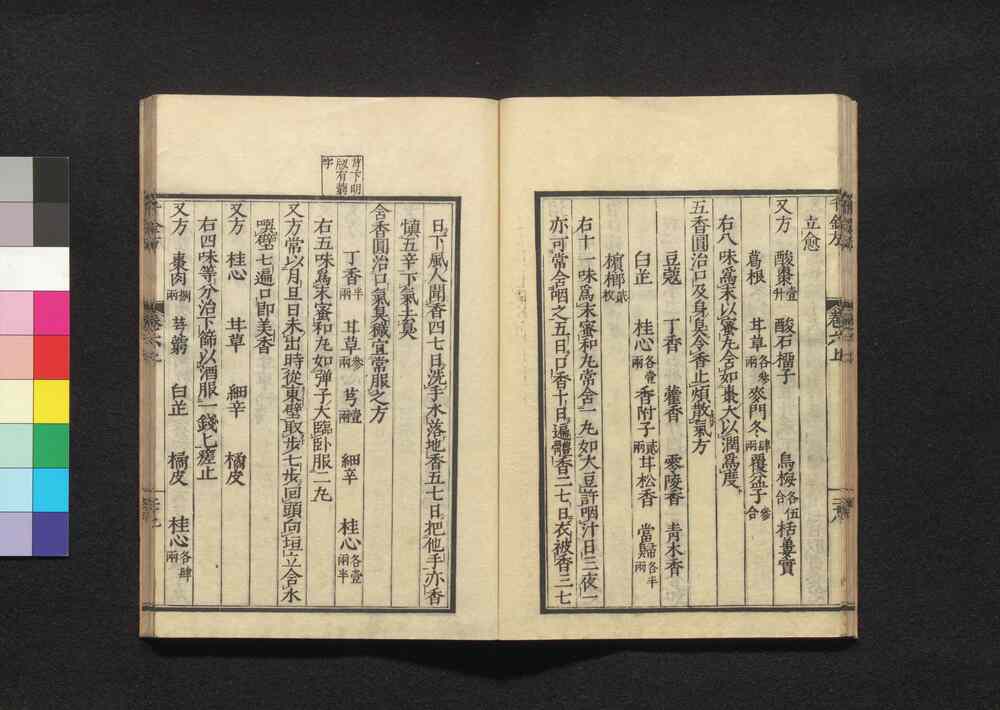 立愈
又方 酸棗壹升 酸石榴子 烏梅各伍合 栝蔞實
葛根 甘草各參兩 麥門冬肆兩 覆盆子參合
右八味爲末以蜜丸含如棗大以潤爲度
五香圓治口及身臭令香止煩散氣方
豆蔻 丁香 藿香 零陵香 青木香
白芷 桂心各壹兩 香附子貳兩 甘松香 當歸各半兩
檳榔貳枚
右十一味爲末蜜和丸常含一丸如大豆許咽汁日三夜一
亦可常含咽之五日口香十日遍體香二七日衣被香三七
日下風人聞香四七日洗手水落地香五七日把他手亦香
慎五辛下氣去臭
含香圓治口氣臭穢宜常服之方
丁香半兩 甘草參兩 芎壹兩 細辛 桂心各壹兩半
芎下明版有藭字
右五味爲末蜜和丸如彈子大臨臥服二丸
又方常以月旦日未出時從東壁取步七步回頭向垣立含水
噀壁七遍口即美香
又方 桂心 甘草 細辛 橘皮
右四味等分治下篩以酒服一錢匕瘥止
又方 棗肉捌兩 芎藭 白芷 橘皮 桂心各肆兩